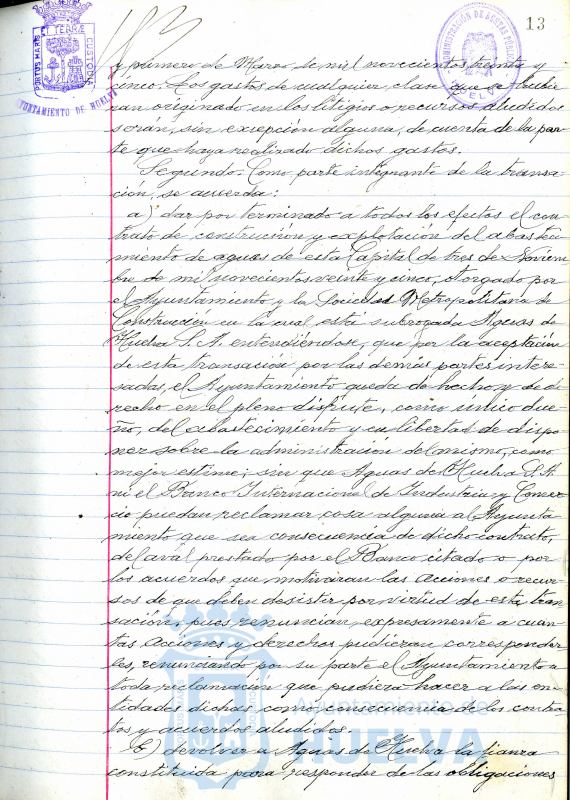 13
PORTUS MARIS ET TERRÆ CUSTODIA
AYUNTAMIENTO DE HUELVA
ADMINISTRACIÓN DE AGUAS POTABLES
HUELVA
y primero de Marzo de mil novecientos treinta y
cinco. Los gastos de cualquier clase que se hubie
ran originado en los litigios o recursos aludidos
serán, sin excepción alguna, de cuenta de la par
te que haya realizado dichos gastos.
Segundo. Como parte integrante de la transa
ción, se acuerda:
a) dar por terminado a todos los efectos el con
trato de construcción y explotación del abasteci
miento de aguas de esta Capital de tres de Noviem
bre de mil novecientos veinte y cinco, otorgado por
el Ayuntamiento y la Sociedad Metropolitana de
Construcción en la cual está subrogada Aguas de
Huelva S. A. entendiéndose, que por la aceptación
de esta transación por las demás partes intere
sadas, el Ayuntamiento queda de hecho y de de
recho en el pleno disfrute, como único due
ño, del abastecimiento y en libertad de dispo
ner sobre la administración del mismo, como
mejor estime; sin que Aguas de Huelva S. A.
ni el Banco Internacional de Industria y Comer
cio puedan reclamar cosa alguna al Ayunta
miento que sea consecuencia de dicho contrato,
del aval prestado por el Banco citado o por
los acuerdos que motivaran las acciones o recur
sos de que deben desistir por virtud de esta tran
sación, pues renuncian expresamente a cuan
tas acciones y derechos pudieran corresponder
les, renunciando por su parte el Ayuntamiento a
toda reclamación que pudiera hacer a las en
tidades dichas como consecuencia de los contra
tos y acuerdos aludidos.
b) devolver a Aguas de Huelva la fianza
constituida para responder de las obligaciones
Ayuntamiento de
HUELVA